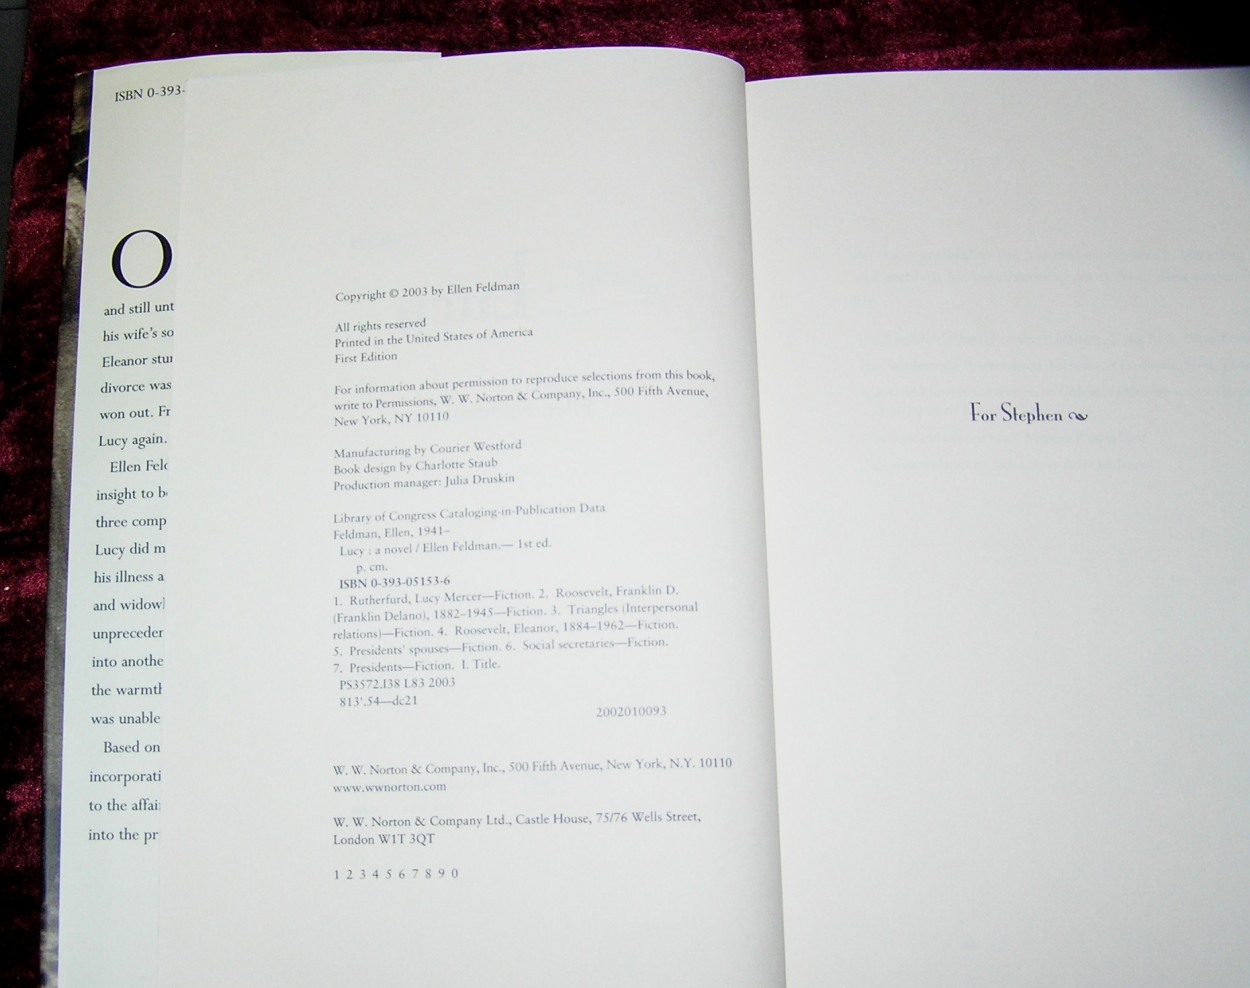 ISBN 0-393-
O
and still unt
his wife's so
Eleanor stu
divorce was
won out. Fr
Lucy again.
Ellen Feld
insight to b
three comp
Lucy did m
his illness a
and widow
unpreceden
into anothe
the warmth
was unable
Based on
incorporati
to the affai
into the pr
Copyright © 2003 by Ellen Feldman
All rights reserved
Printed in the United States of America
First Edition
For information about permission to reproduce selections from this book,
write to Permissions, W. W. Norton & Company, Inc., 500 Fifth Avenue,
New York, NY 10110
Manufacturing by Courier Westford
Book design by Charlotte Staub
Production manager: Julia Druskin
Library of Congress Cataloging-in-Publication Data
Feldman, Ellen, 1941–
Lucy : a novel / Ellen Feldman.— 1st ed.
p. cm.
ISBN 0-393-05153-6
1. Rutherfurd, Lucy Mercer—Fiction. 2. Roosevelt, Franklin D.
(Franklin Delano), 1882–1945—Fiction. 3. Triangles (Interpersonal
relations)—Fiction. 4. Roosevelt, Eleanor, 1884–1962—Fiction.
5. Presidents' spouses—Fiction. 6. Social secretaries—Fiction.
7. Presidents—Fiction. I. Title.
PS3572.I38 L83 2003
813'.54—dc21
2002010093
W. W. Norton & Company, Inc., 500 Fifth Avenue, New York, N.Y. 10110
www.wwnorton.com
W. W. Norton & Company Ltd., Castle House, 75/76 Wells Street,
London W1T 3QT
1 2 3 4 5 6 7 8 9 0
For Stephen